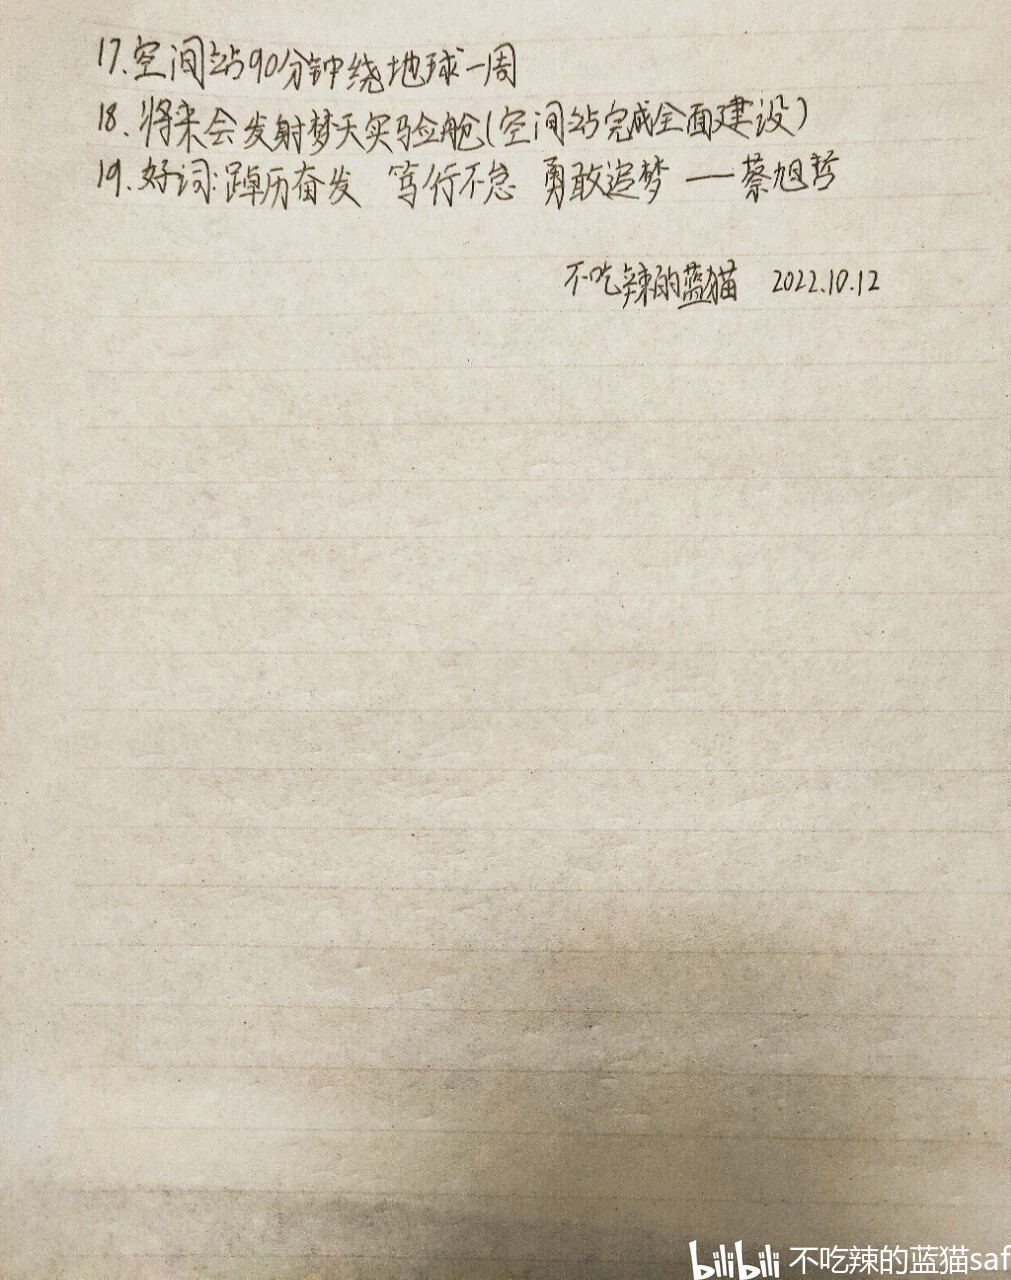 17.空间站90分钟绕地球一周
18、将来会发射梦天实验舱(空间站完成全面建设)
19.好词:踔历奋发 笃行不怠 勇敢追梦 ——蔡旭哲
不吃辣的蓝猫 2022.10.12
bilibili 不吃辣的蓝猫saf